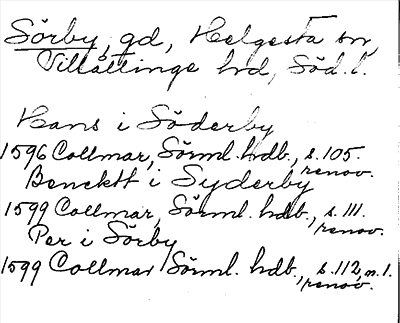 Sörby, gd, Helgesta sn,
Villåttinge hd, Söd. l.
Hans i Söderby
1596 Collmar, Sörml. hdb., s. 105.
renov.
Bencktt i Syderby
1599 Collmar, Sörml. hdb., s. 111.
renov.
Per i Sörby
1599 Collmar Sörml. hdb., s. 112, n. 1.
renov.